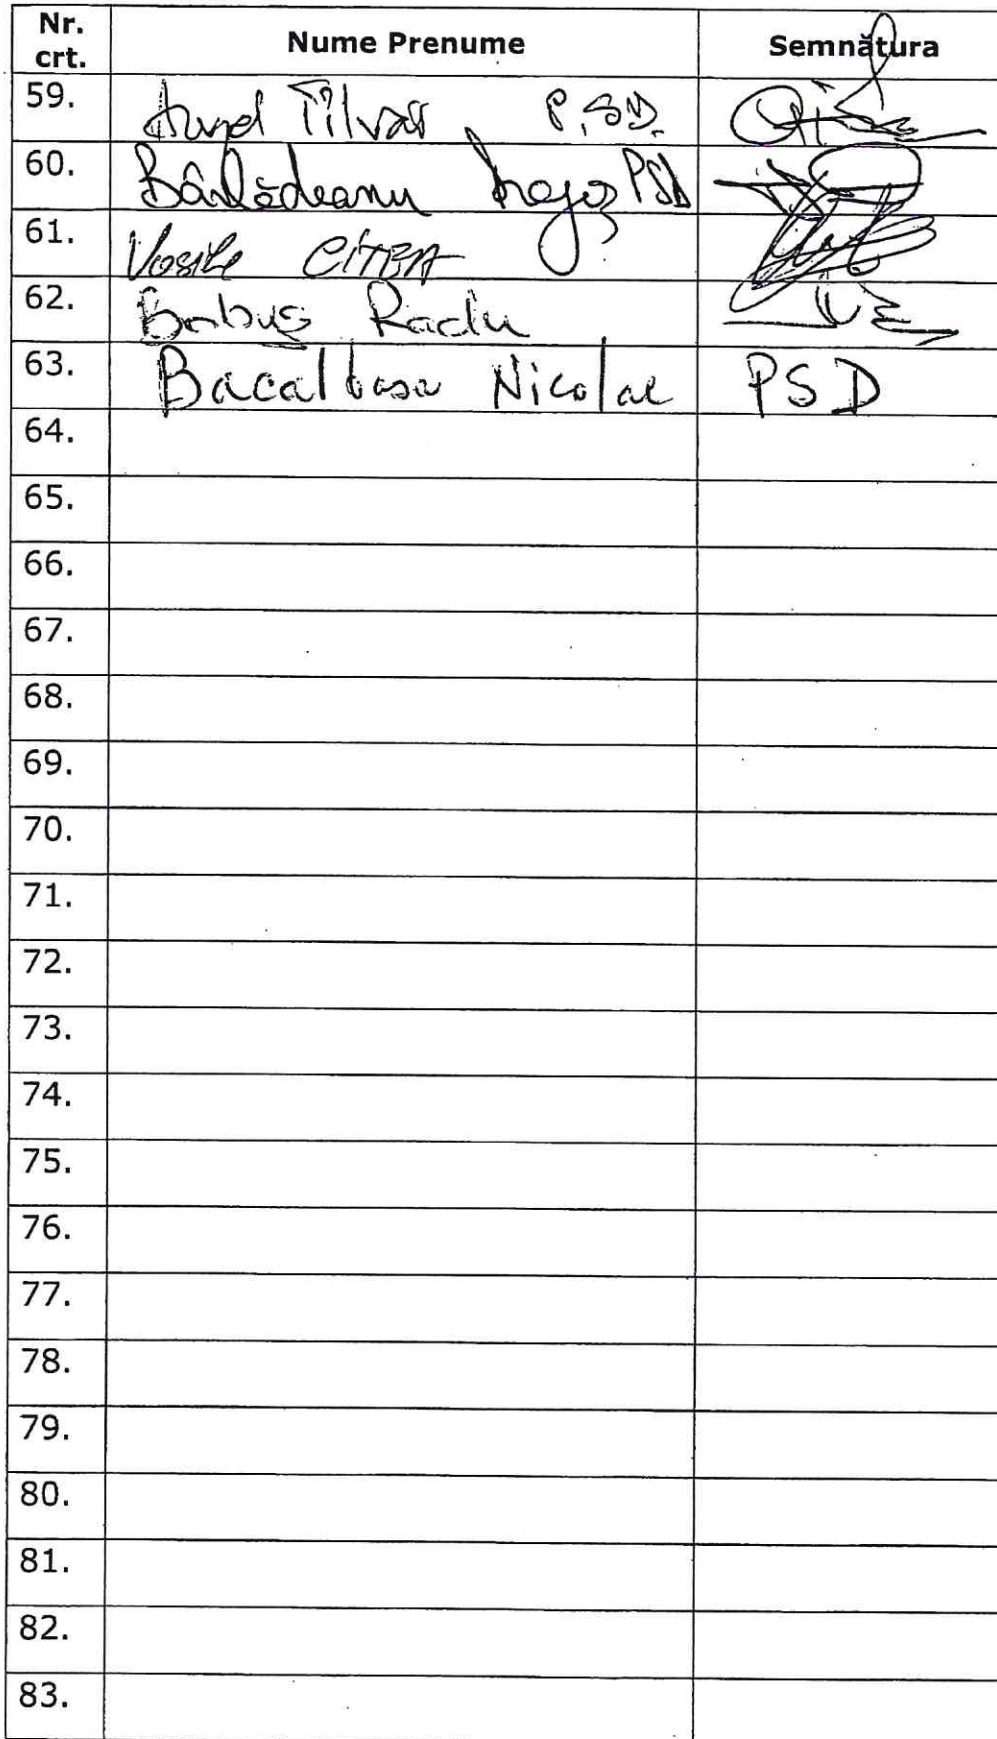 Nr. crt. Nume Prenume Semnătura
59. Aurel Tîlvăr P.SD.
60. Bârlădeanu PSD
61. Vasile
62. Babuș Radu
63. Bacalbasa Nicolae PSD
64.
65.
66.
67.
68.
69.
70.
71.
72.
73.
74.
75.
76.
77.
78.
79.
80.
81.
82.
83.